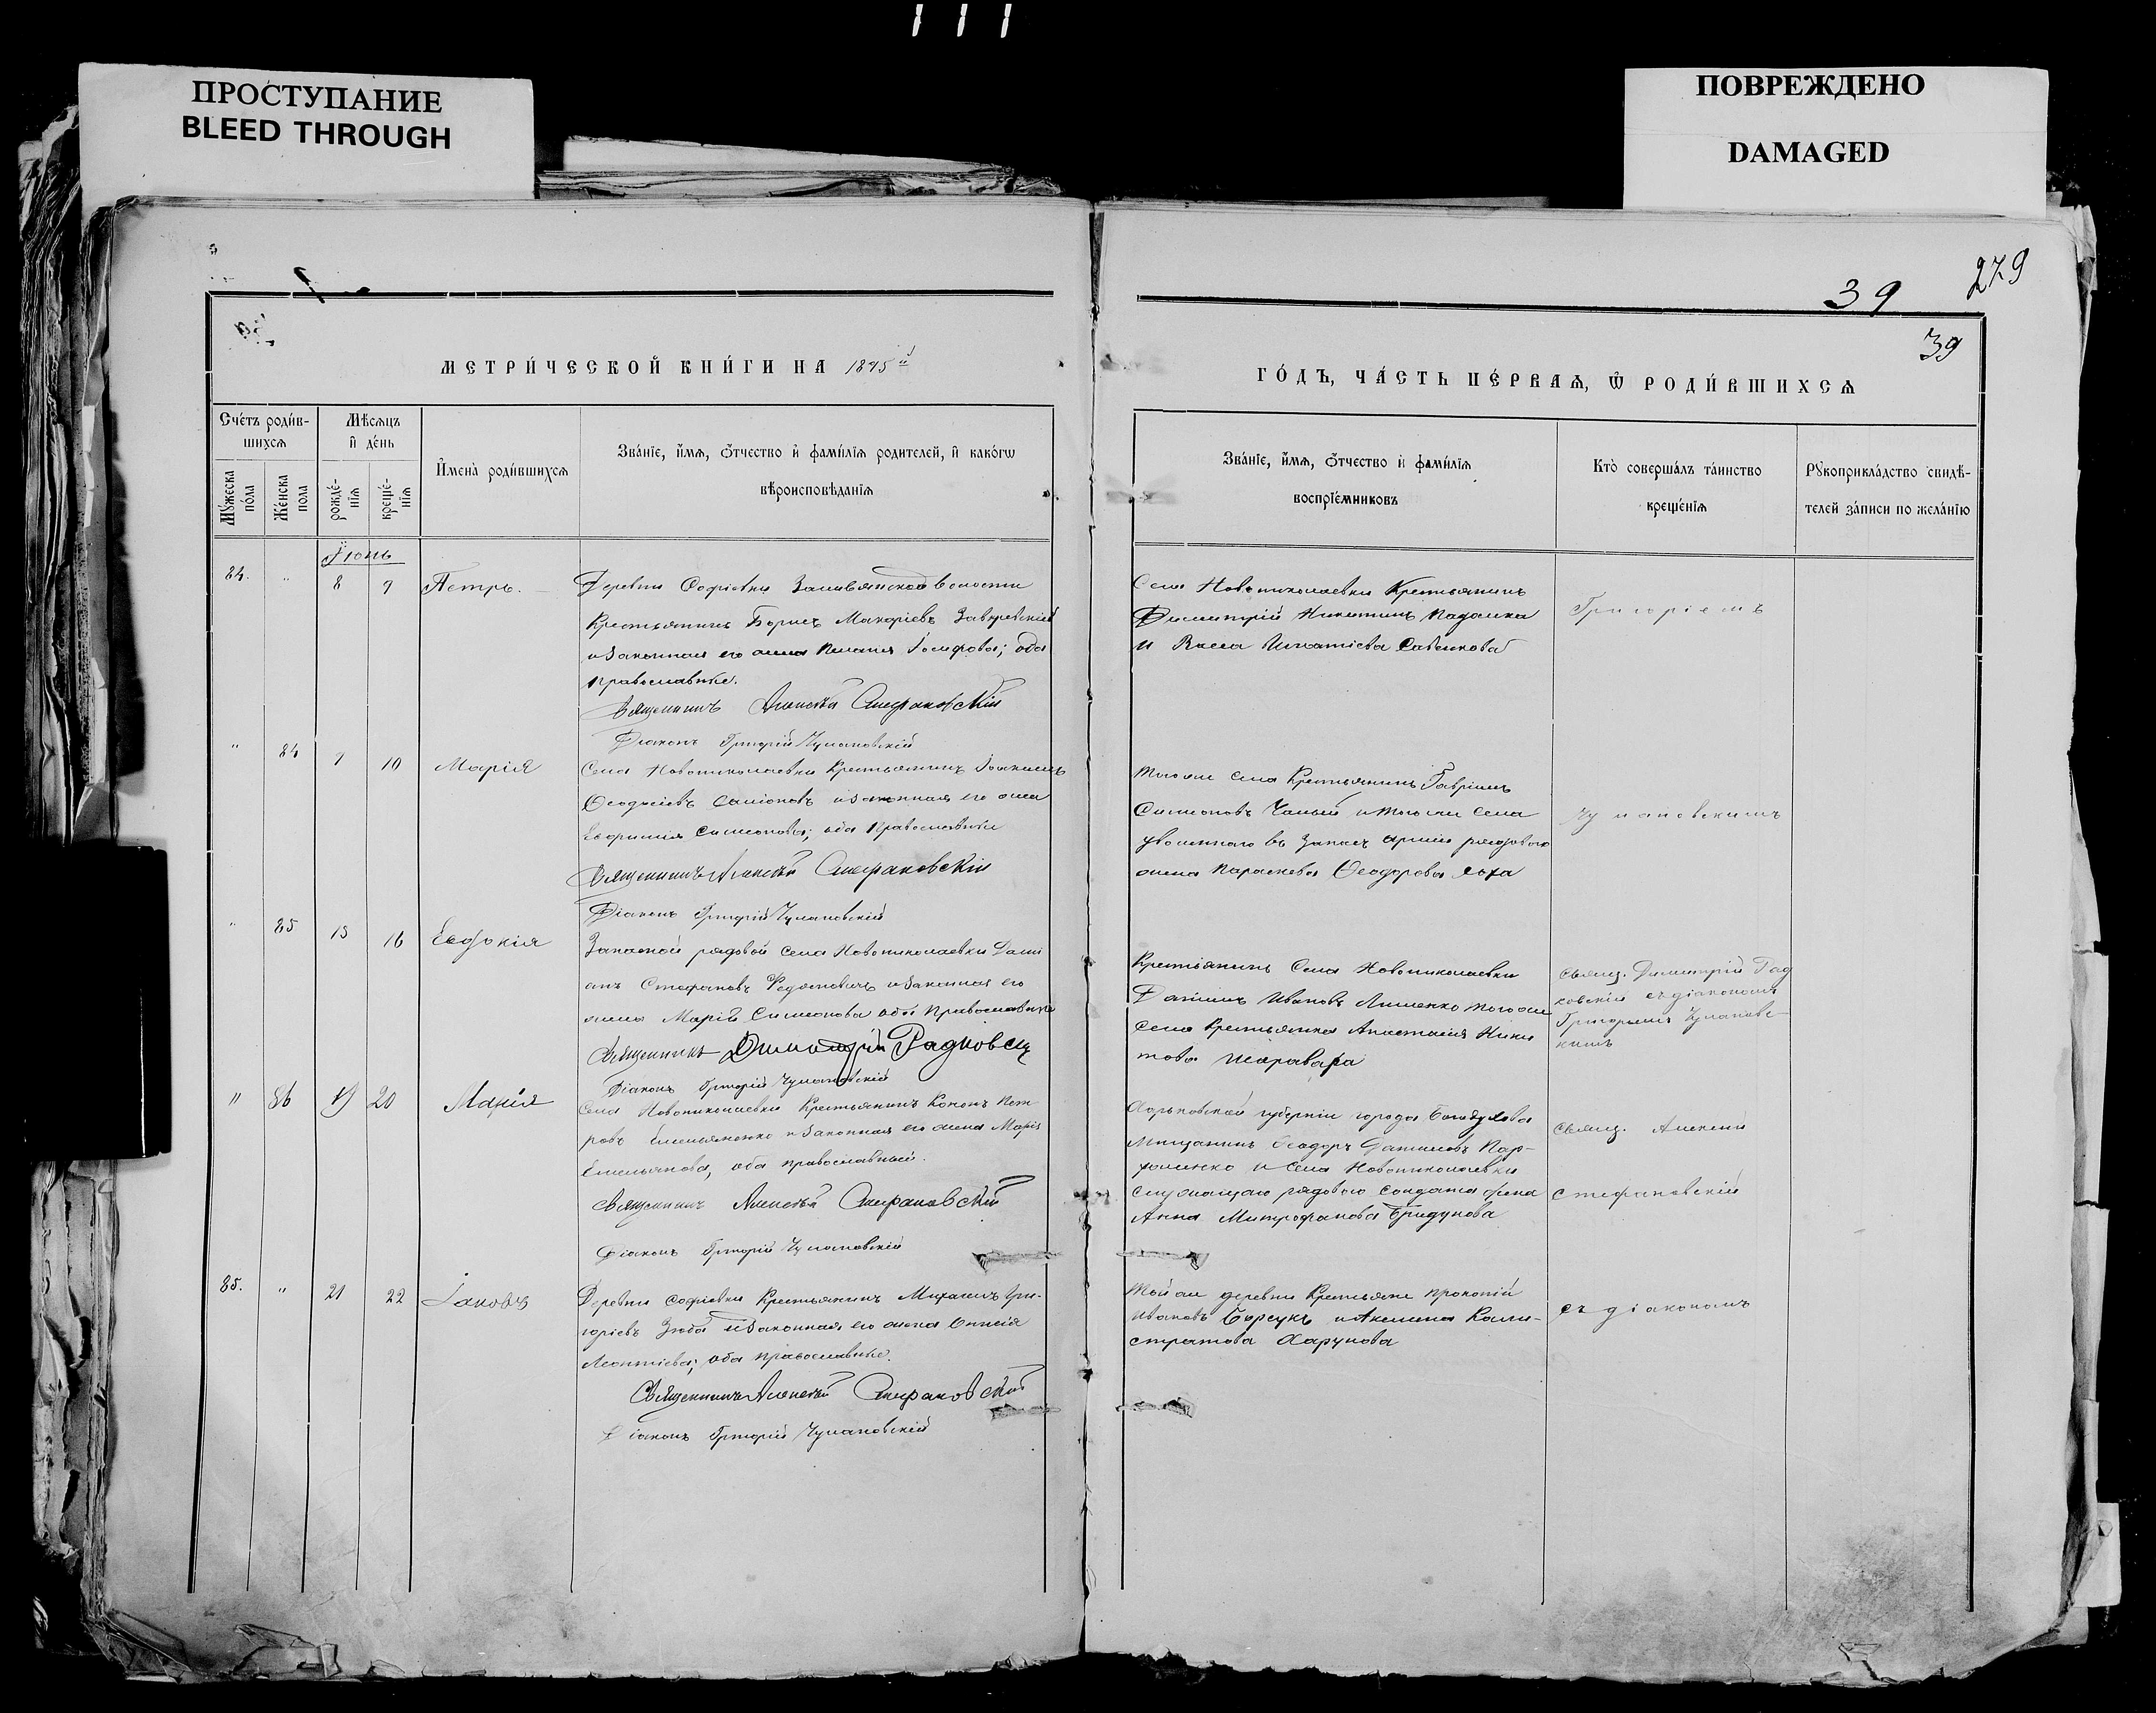 ПРОСТУПАНИЕ
BLEED THROUGH
ПОВРЕЖДЕНО
DAMAGED
279
39
39
МЕТРИ́ЧЕСКОЙ КНИ́ГИ НА 1895 й
ГО́ДЪ, ЧА́СТЬ ПЕ́РВАѦ, Ѿ РОДИ́ВШИХСѦ
Сче́тъ роди́в-
шихсѧ
Мѣ́сѧцъ
и҆ де́нь
Мꙋ́жеска
по́ла
Же́нска
пола
рожде́-
нїѧ
креще́-
нїѧ
И҆мена̀ роди́вшихсѧ
Зва́нїе, и҆́мѧ, ѻ҆́тчество и҆ фами́лїѧ родителей, и҆ како́гѡ
вѣроисповѣ́данїѧ
Зва́нїе, и҆́мѧ, ѻ҆́тчество и҆ фами́лїѧ
воспрїе́мниковъ
Кто̀ соверша́лъ та́инство
креще́нїѧ
Рꙋкоприкла́дство свидѣ́-
телей за́писи по жела́нїю
Іюнь
84. " 8 9 Петръ.
Деревни Софіевки волости
Крестьянинъ Борисъ Макаріевъ
и законная его жена Іосифова; оба
православные.
Священникъ Алексѣй Стефановскій
Діаконъ Григорій Чумановскій
Села Новониколаевки Крестьянинъ
Димитрій Никитинъ
и Васса Игнатіева
Григоріемъ
" 84 9 10 Марія
Села Новониколаевки Крестьянинъ Іоакимъ
Ѳеодосіевъ и законная его жена
Евфимія Симеонова; оба православные
Священникъ Алексѣй Стефановскій
Діаконъ Григорій Чумановскій
того же села Крестьянинъ Гавріилъ
Симеоновъ и того же села
уволеннаго въ запасъ арміи рядового
жена Параскева Ѳеодорова
Чумановскимъ
" 85 15 16 Евдокія
Запасной рядовой села Новониколаевки Дами
анъ Стефановъ и законная его
жена Марія Симеонова оба православные
Священникъ Димитрій
Діаконъ Григорій Чумановскій
Крестьянинъ Села Новониколаевки
Даніилъ Ивановъ того же
села Крестьянка Анастасія Ники
това Шаравара
свящ. Димитрій Рад
ковскій съ діакономъ
Григоріемъ Чумановс-
кимъ
" 86 19 20 Марія
Села Новониколаевки Крестьянинъ Кононъ Пет-
ровъ Емельяненко и законная его жена Марія
Емельянова, оба православные.
Священникъ Алексѣй Стефановскій
Діаконъ Григорій Чумановскій
Харьковской губерніи города Богодухова
Мѣщанинъ Ѳеодоръ Даниловъ Пар-
хоменко и села Новониколаевки
служащаго рядового солдата жена
Анна Митрофанова
свящ. Алексѣй
Стефановскій
85. " 21 22 Іаковъ
Деревни Софіевки Крестьянинъ Михаилъ Гри-
горіевъ и законная его жена
Леонтіева; оба православные.
Священникъ Алексѣй Стефановскій
Діаконъ Григорій Чумановскій
Той же деревни Крестьяне Прокопій
Ивановъ Борсукъ и Акилина Кали-
стратова
съ діакономъ